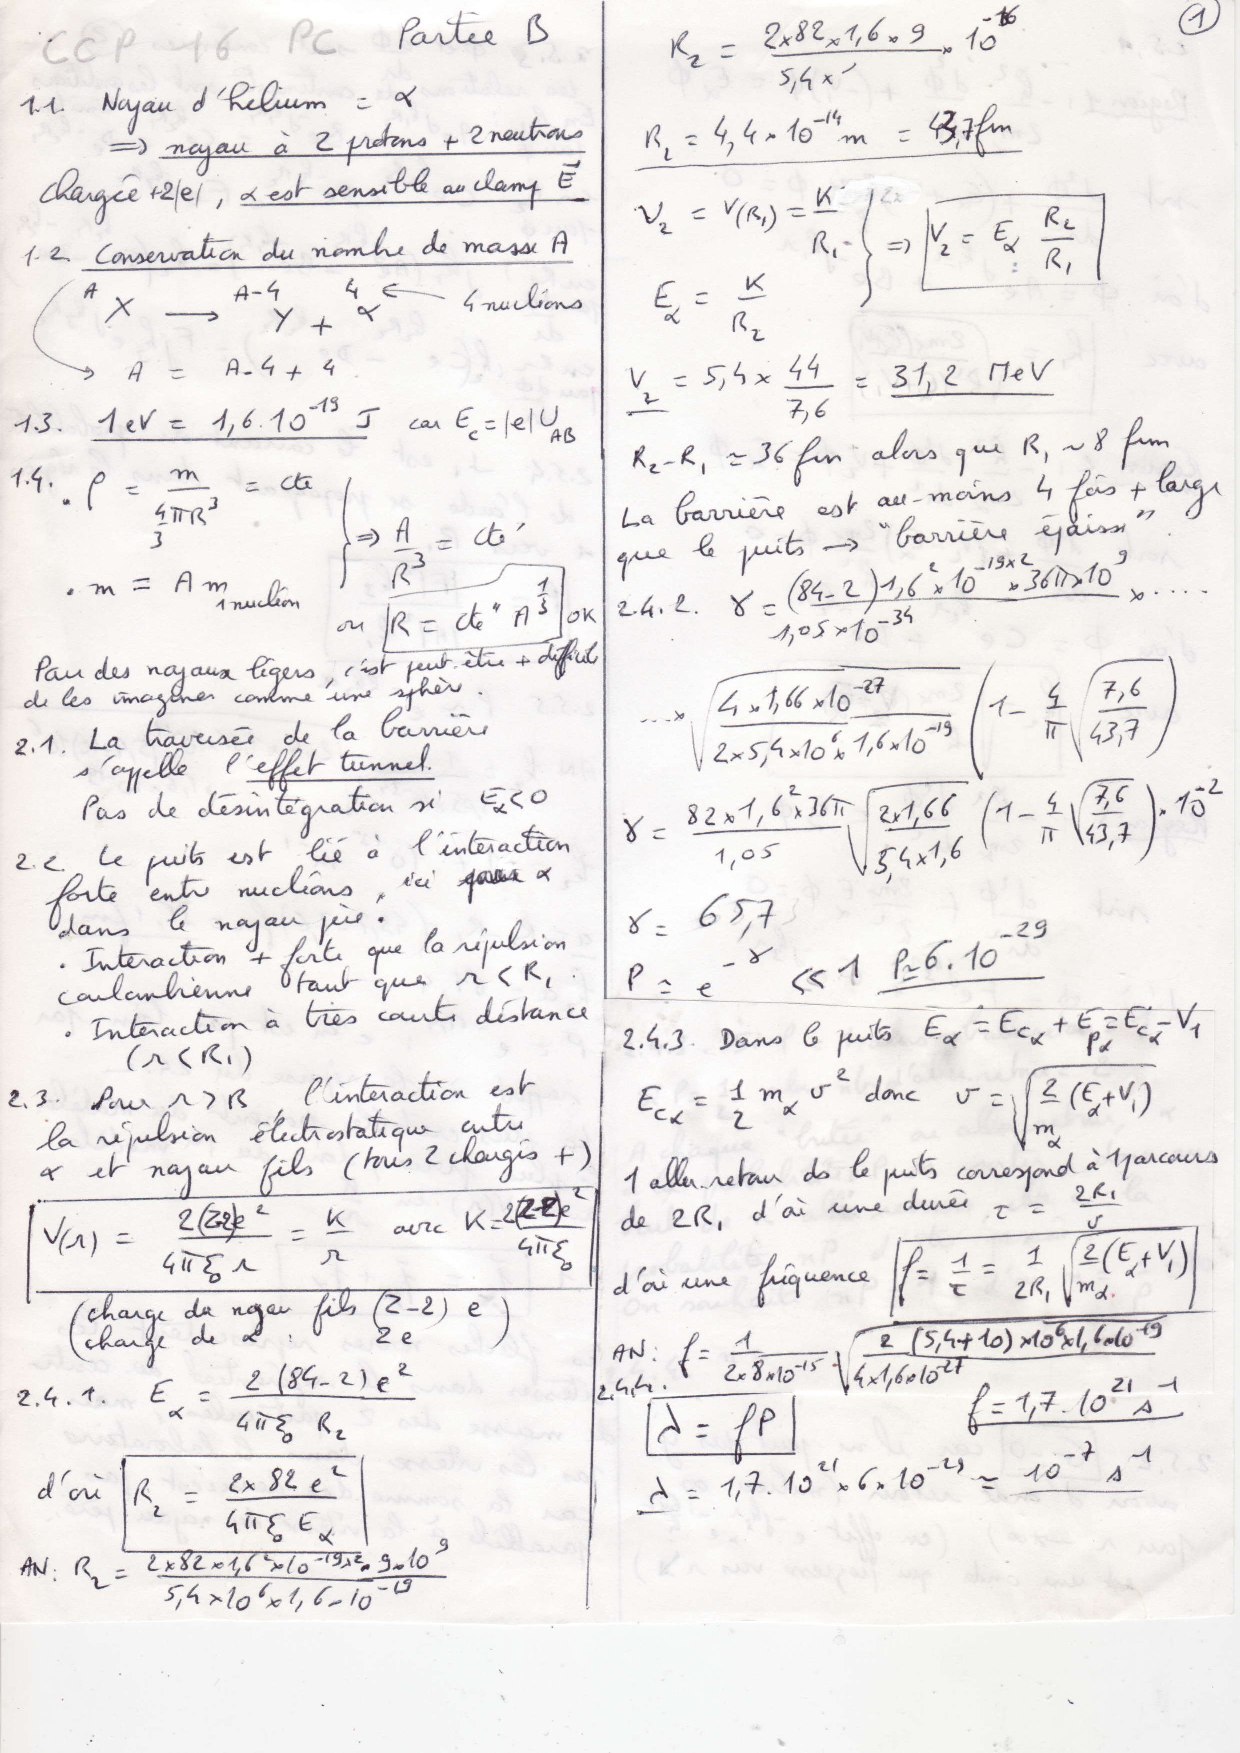 CCP 16 PC Partie B
1.1. Noyau d'hélium = α
=> noyau à 2 protons + 2 neutrons
chargée +2|e|, α est sensible au champ E⃗
1.2. Conservation du nombre de masse A
ᴬX → ᴬ⁻⁴Y + ⁴α ← 4 nucléons
→ A = A-4 + 4
1.3. 1 eV = 1,6.10⁻¹⁹ J car E_c = |e|U_AB
1.4. • ρ = m / (4/3 πR³) = cte
=> A/R³ = cte'
• m = A m_1 nucléon
ou R = cte" A^(1/3) OK
Pour des noyaux légers, c'est peut-être + difficile
de les imaginer comme une sphère.
2.1. La traversée de la barrière
s'appelle l'effet tunnel.
Pas de désintégration si E_α<0
2.2. Le puits est lié à l'interaction
forte entre nucléons, ici α
dans le noyau père.
• Interaction + forte que la répulsion
coulombienne tant que r < R₁.
• Interaction à très courte distance
(r < R₁)
2.3. Pour r > R, l'interaction est
la répulsion électrostatique entre
α et noyau fils (tous 2 chargés +)
V(r) = 2(Z-2)e² / 4πε₀ r = K/r avec K = 2(Z-2)e² / 4πε₀
(charge du noyau fils (Z-2) e)
(charge de α : 2e)
2.4.1. E_α = 2(84-2)e² / 4πε₀ R₂
d'où R₂ = 2×82 e² / 4πε₀ E_α
AN: R₂ = 2×82×1,6²×10^(-19×2) × 9×10⁹ / 5,4×10⁶×1,6×10⁻¹⁹
①
R₂ = 2×82×1,6×9 / 5,4 × 10⁻¹⁶
R₂ = 4,4×10⁻¹⁴ m = 43,7 fm
V₂ = V(R₁) = K/R₁
=> V₂ = E_α R₂/R₁
E_α = K/R₂
V₂ = 5,4 × 44/7,6 = 31,2 MeV
R₂-R₁ ≃ 36 fm alors que R₁ ~ 8 fm
La barrière est au-moins 4 fois + large
que le puits → "barrière épaisse".
2.4.2. γ = (84-2)1,6²×10^(-19×2) × 36π×10⁹ / 1,05×10⁻³⁴ × ....
...× √(4×1,66×10⁻²⁷ / 2×5,4×10⁶×1,6×10⁻¹⁹) (1 - 4/π √(7,6/43,7))
γ = 82×1,6²×36π / 1,05 √(2×1,66 / 5,4×1,6) (1 - 4/π √(7,6/43,7)) . 10⁻²
γ = 65,7
P = e^(-γ) << 1 P≃6.10⁻²⁹
2.4.3. Dans le puits E_α = E_cα + E_pα = E_cα - V₁
E_cα = 1/2 m_α v² donc v = √(2/m_α (E_α+V₁))
1 aller-retour ds le puits correspond à 1 parcours
de 2R₁ d'où une durée τ = 2R₁/v
d'où une fréquence f = 1/τ = 1/2R₁ √(2/m_α (E_α+V₁))
AN: f = 1/(2×8×10⁻¹⁵) √(2 (5,4+10)×10⁶×1,6×10⁻¹⁹ / 4×1,6×10⁻²⁷)
f = 1,7.10²¹ s⁻¹
2.4.4.
λ = fP
λ = 1,7.10²¹×6×10⁻²⁹ ≃ 10⁻⁷ s⁻¹